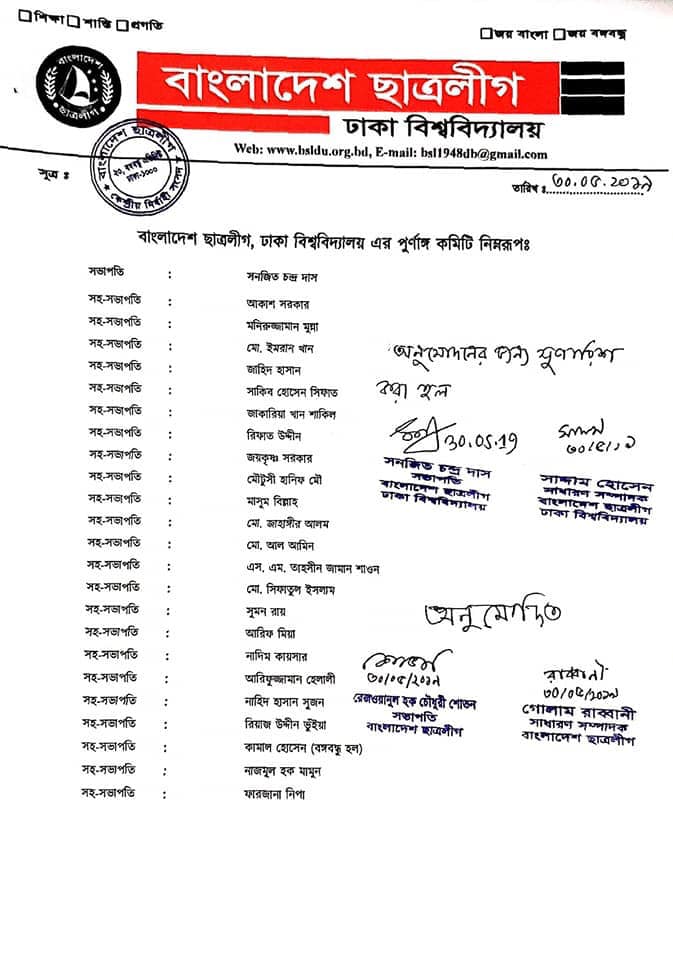 শিক্ষা শান্তি প্রগতি
জয় বাংলা জয় বঙ্গবন্ধু
বাংলাদেশ ছাত্রলীগ
বাংলাদেশ ছাত্রলীগ
ঢাকা বিশ্ববিদ্যালয়
Web: www.bsldu.org.bd, E-mail: bsl1948db@gmail.com
বাংলাদেশ ছাত্রলীগ
২৩, বঙ্গবন্ধু এভিনিউ
ঢাকা-১০০০
কেন্দ্রীয় নির্বাহী সংসদ
সূত্র ঃ
তারিখ ঃ ৩০.০৫.২০১৯
বাংলাদেশ ছাত্রলীগ, ঢাকা বিশ্ববিদ্যালয় এর পুর্ণাঙ্গ কমিটি নিম্নরূপঃ
সভাপতি : সনজিত চন্দ্র দাস
সহ-সভাপতি : আকাশ সরকার
সহ-সভাপতি : মনিরুজ্জামান মুন্না
সহ-সভাপতি : মো. ইমরান খান
সহ-সভাপতি : জাহিদ হাসান
সহ-সভাপতি : সাকিব হোসেন সিফাত
সহ-সভাপতি : জাকারিয়া খান শাকিল
সহ-সভাপতি : রিফাত উদ্দীন
সহ-সভাপতি : জয়কৃষ্ণ সরকার
সহ-সভাপতি : মৌটুসী হানিফ মৌ
সহ-সভাপতি : মাসুম বিল্লাহ
সহ-সভাপতি : মো. জাহাঙ্গীর আলম
সহ-সভাপতি : মো. আল আমিন
সহ-সভাপতি : এস. এম. তাহসীন জামান শাওন
সহ-সভাপতি : মো. সিফাতুল ইসলাম
সহ-সভাপতি : সুমন রায়
সহ-সভাপতি : আরিফ মিয়া
সহ-সভাপতি : নাদিম কায়সার
সহ-সভাপতি : আরিফুজ্জামান হেলালী
সহ-সভাপতি : নাহিদ হাসান সুজন
সহ-সভাপতি : রিয়াজ উদ্দীন ভুঁইয়া
সহ-সভাপতি : কামাল হোসেন (বঙ্গবন্ধু হল)
সহ-সভাপতি : নাজমুল হক মামুন
সহ-সভাপতি : ফারজানা নিপা
অনুমোদনের জন্য সুপারিশ
করা হল
30.05.19
সনজিত চন্দ্র দাস
সভাপতি
বাংলাদেশ ছাত্রলীগ
ঢাকা বিশ্ববিদ্যালয়
সাদ্দাম
৩০/৫/১৯
সাদ্দাম হোসেন
সাধারণ সম্পাদক
বাংলাদেশ ছাত্রলীগ
ঢাকা বিশ্ববিদ্যালয়
অনুমোদিত
৩০/০৫/২০১৯
রেজওয়ানুল হক চৌধুরী শোভন
সভাপতি
বাংলাদেশ ছাত্রলীগ
রাব্বানী
৩০/০৫/২০১৯
গোলাম রাব্বানী
সাধারণ সম্পাদক
বাংলাদেশ ছাত্রলীগ